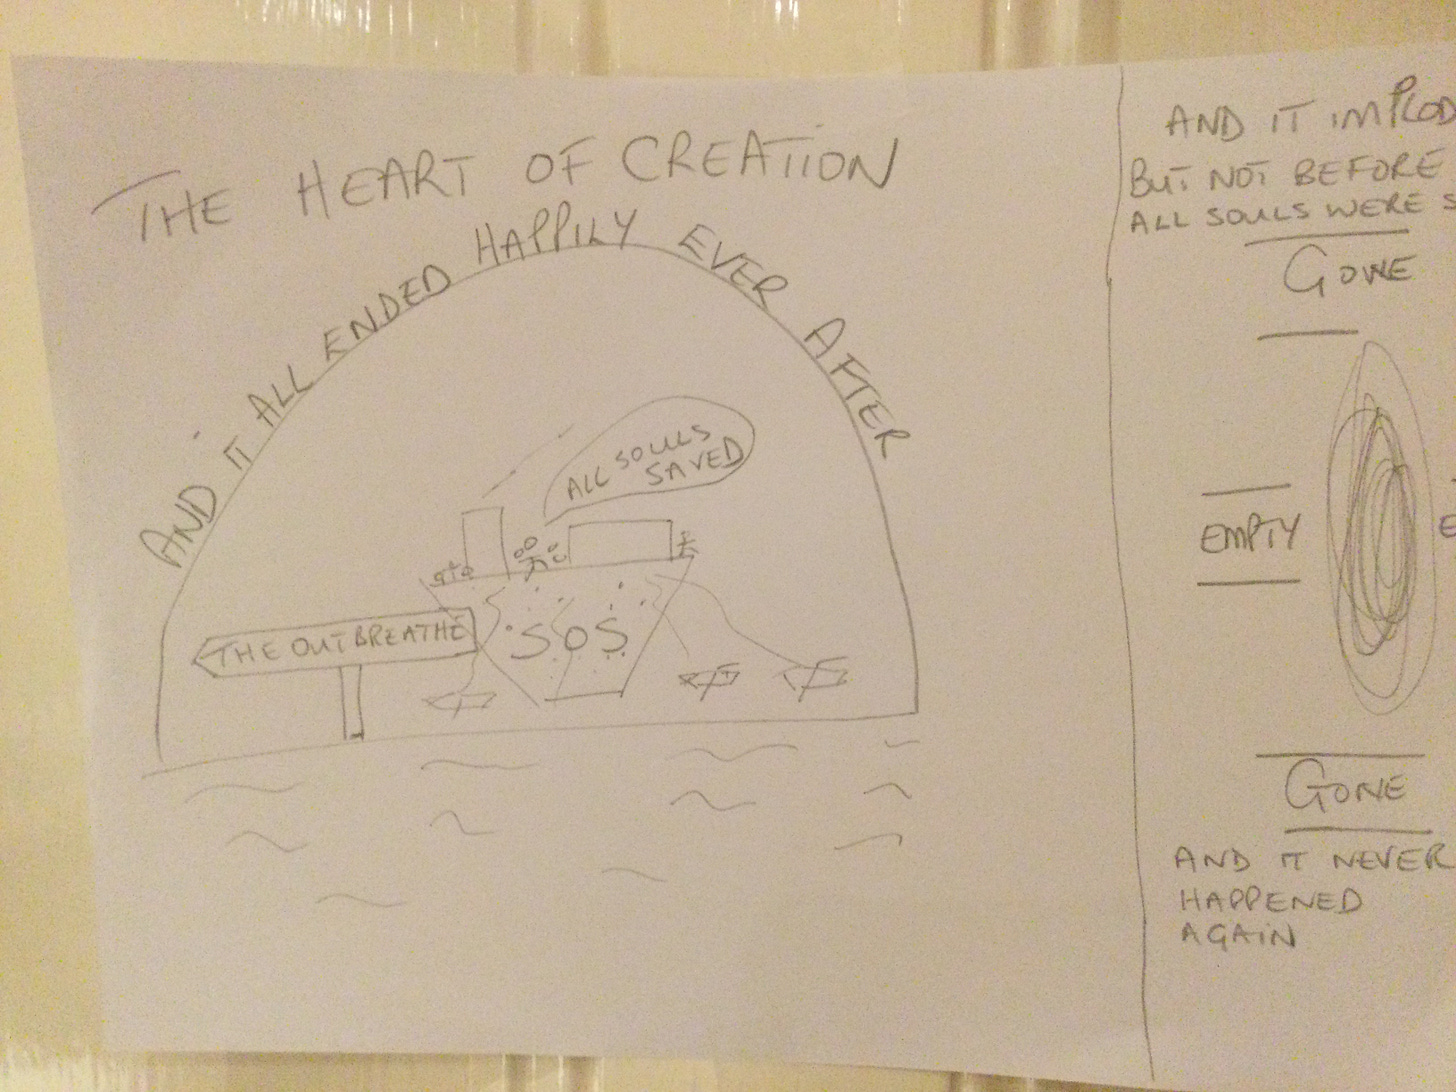 THE HEART OF CREATION
AND IT ALL ENDED HAPPILY EVER AFTER
ALL SOULS
SAVED
THE OUTBREATHE
SOS
AND IT IMPLOD
BUT NOT BEFORE
ALL SOULS WERE S
GONE
EMPTY
E
GONE
AND IT NEVER
HAPPENED
AGAIN